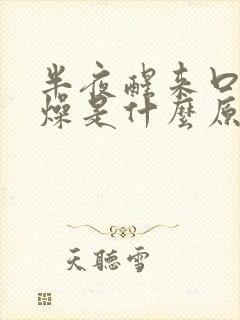 半夜醒来口
燥是什麼原
天聽雪